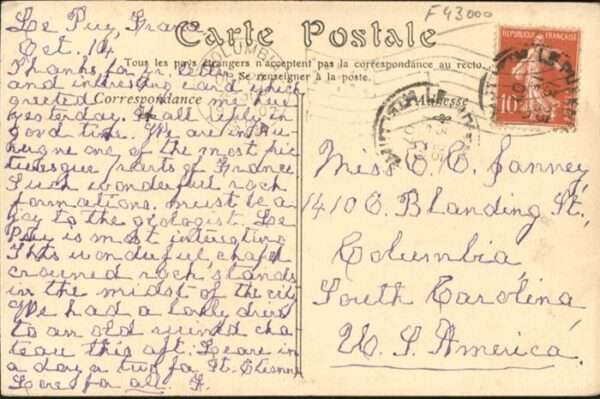 F43000
Le Puy, France
Oct. 14
Carte Postale
Tous les pays étrangers n'acceptent pas la correspondance au recto.
Se renseigner à la poste.
Correspondance
Adresse
REPUBLIQUE FRANÇAISE
10
COLUMBI
LE PUY
Thanks for yr. letter
and interesting card which
greeted me here
yesterday. Shall reply in
good time. We are in Au-
vergne one of the most pic-
turesque parts of France.
Such wonderful rock
formations must be a
joy to the geologist. Le
Puy is most interesting
This wonderful chapel
crowned rock stands
in the midst of the city
We had a lovely drive
to an old ruined cha
teau this aft. Leave in
a day or two for St. Etienne
Love for all. F.
Miss E. C.
1410 Blanding St.,
Columbia,
South Carolina,
U. S. America.